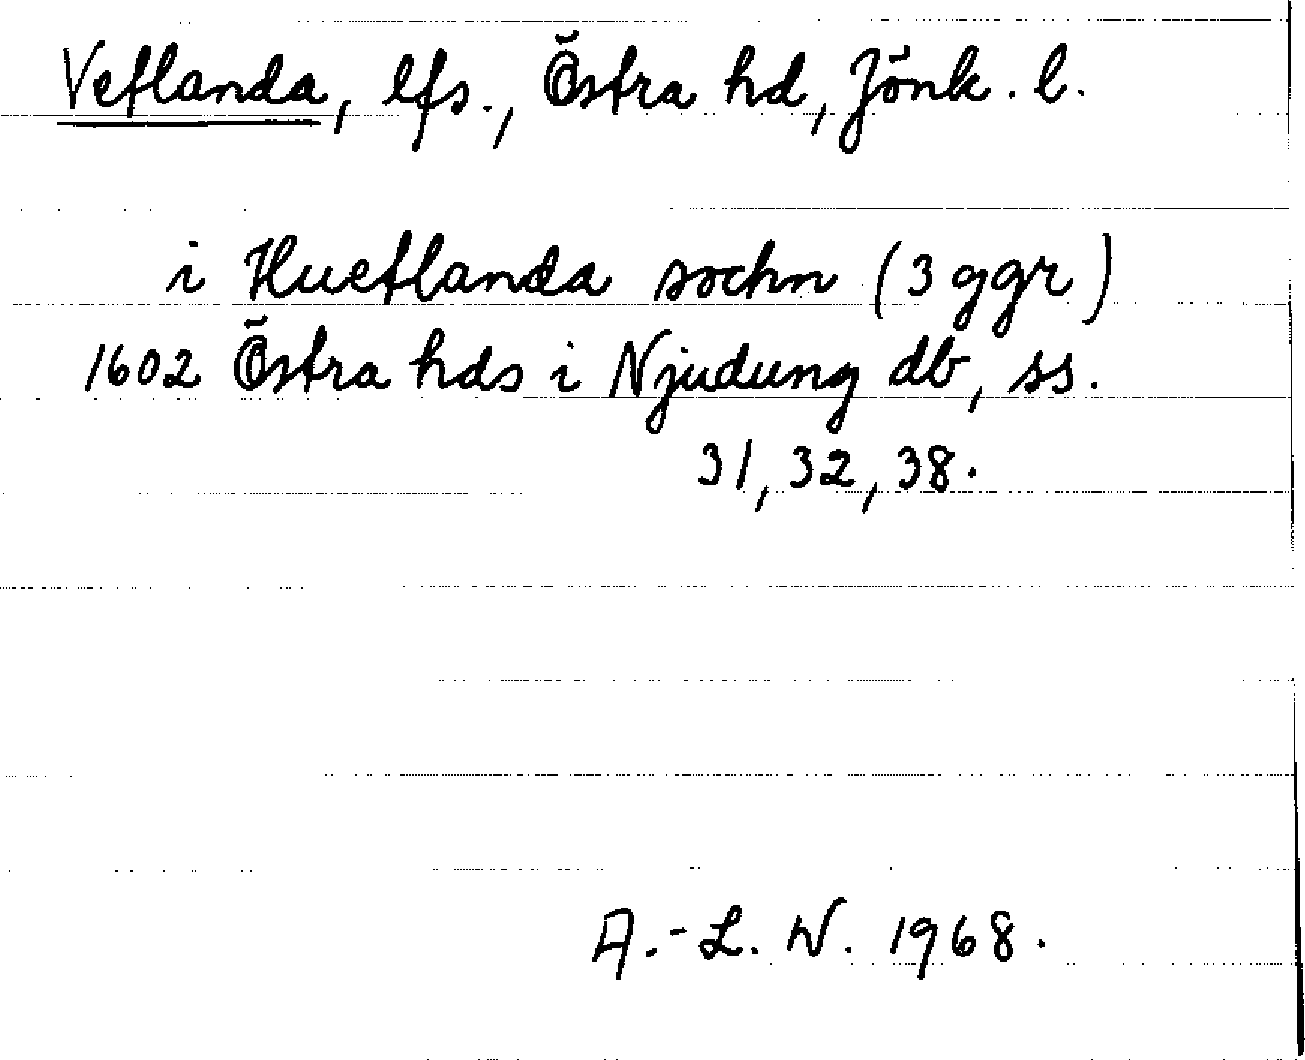 Vetlanda, lfs., Östra hd, Jönk. l.
i Huetlanda sochn (3 ggr)
1602 Östra hds i Njudung db, ss.
31, 32, 38.
A.-L. W. 1968.